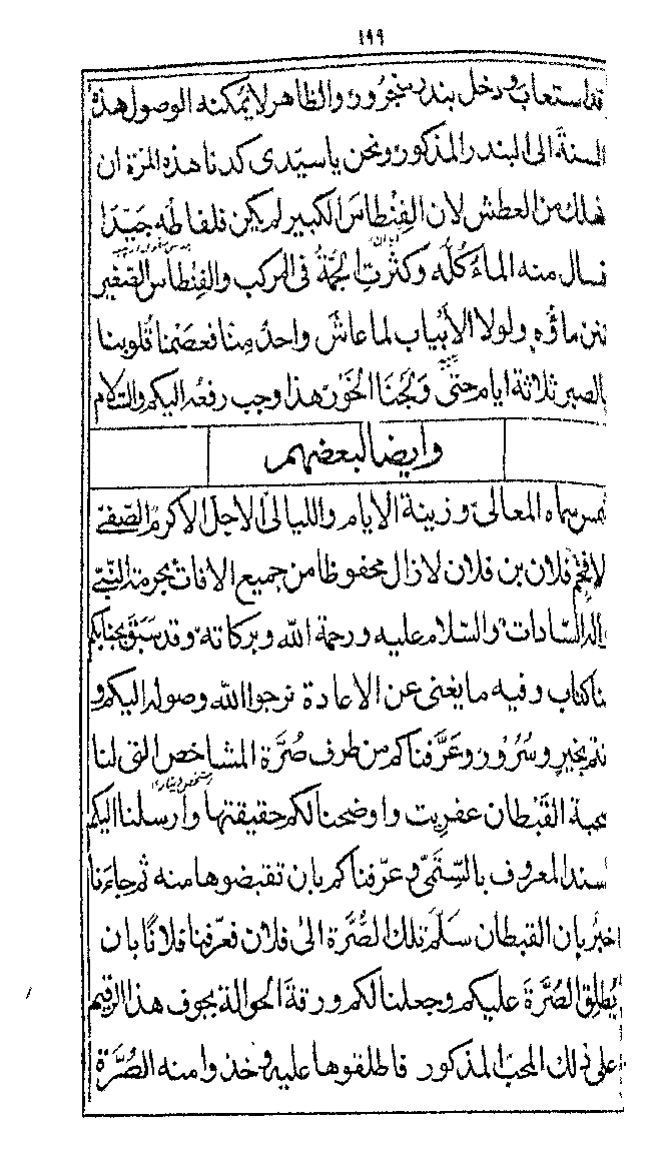 ١٩٩
قد استعاب ودخل بندر سنجرور والظاهر لا يمكنه الوصول هذه
السنةَ الى البندر المذكور ونحن يا سيّدى كدنا هذه المرّة ان
نهلك من العطش لان الفِنْطاسَ الكبير لم يكن قلفاطُه جَيّدًا
فسال منه الماءُ كُلُّه وكثرتِ الجُمَّةُ فى المركب والفِنْطاس الصّغير
نتن ماؤه ولولا الأَبْياب لما عاشَ واحدٌ مِنّا فعصَمْنا قُلوبنا
بالصبر ثلاثة ايام حتى وَلَجْنَا الخَوْر هذا وجب رفعُه اليكم والسّلام
وايضا لبعضهم
شمس سماء المعالى وزينة الايام والليالى الاجل الاكرم الصّفىّ
الافخم فلان بن فلان لا زال محفوظا من جميع الافات بحرمة النّبىّ
واله السّادات والسّلام عليه ورحمة الله وبركاته وقد سَبَقَ بجنابكم
منا كتاب وفيه ما يغنى عن الاعادة نرجوا الله وصوله اليكم و
انتم بخير وسُرُور وعَرَّفناكم من طرف صُرَّة المشاخص التى لنا
صحبة القَبْطان عفريت واوضحنا لكم حقيقتها وارسلنا اليكم
السند المعروف بالسِّتَمىّ وعرّفناكم بان تقبضوها منه ثم جاءَنا
اخبرٌ بان القبطان سَلَّمَ تلك الصُّرَّة الى فلان فعرّفنا فلانًا بان
يُطلِق الصُّرَّةَ عليكم وجعلنا لكم ورقةَ الحوالة بجوف هذا الرقيم
على ذلك المحبّ المذكور فاطلقوها عليه وخذوا منه الصُّرَّة